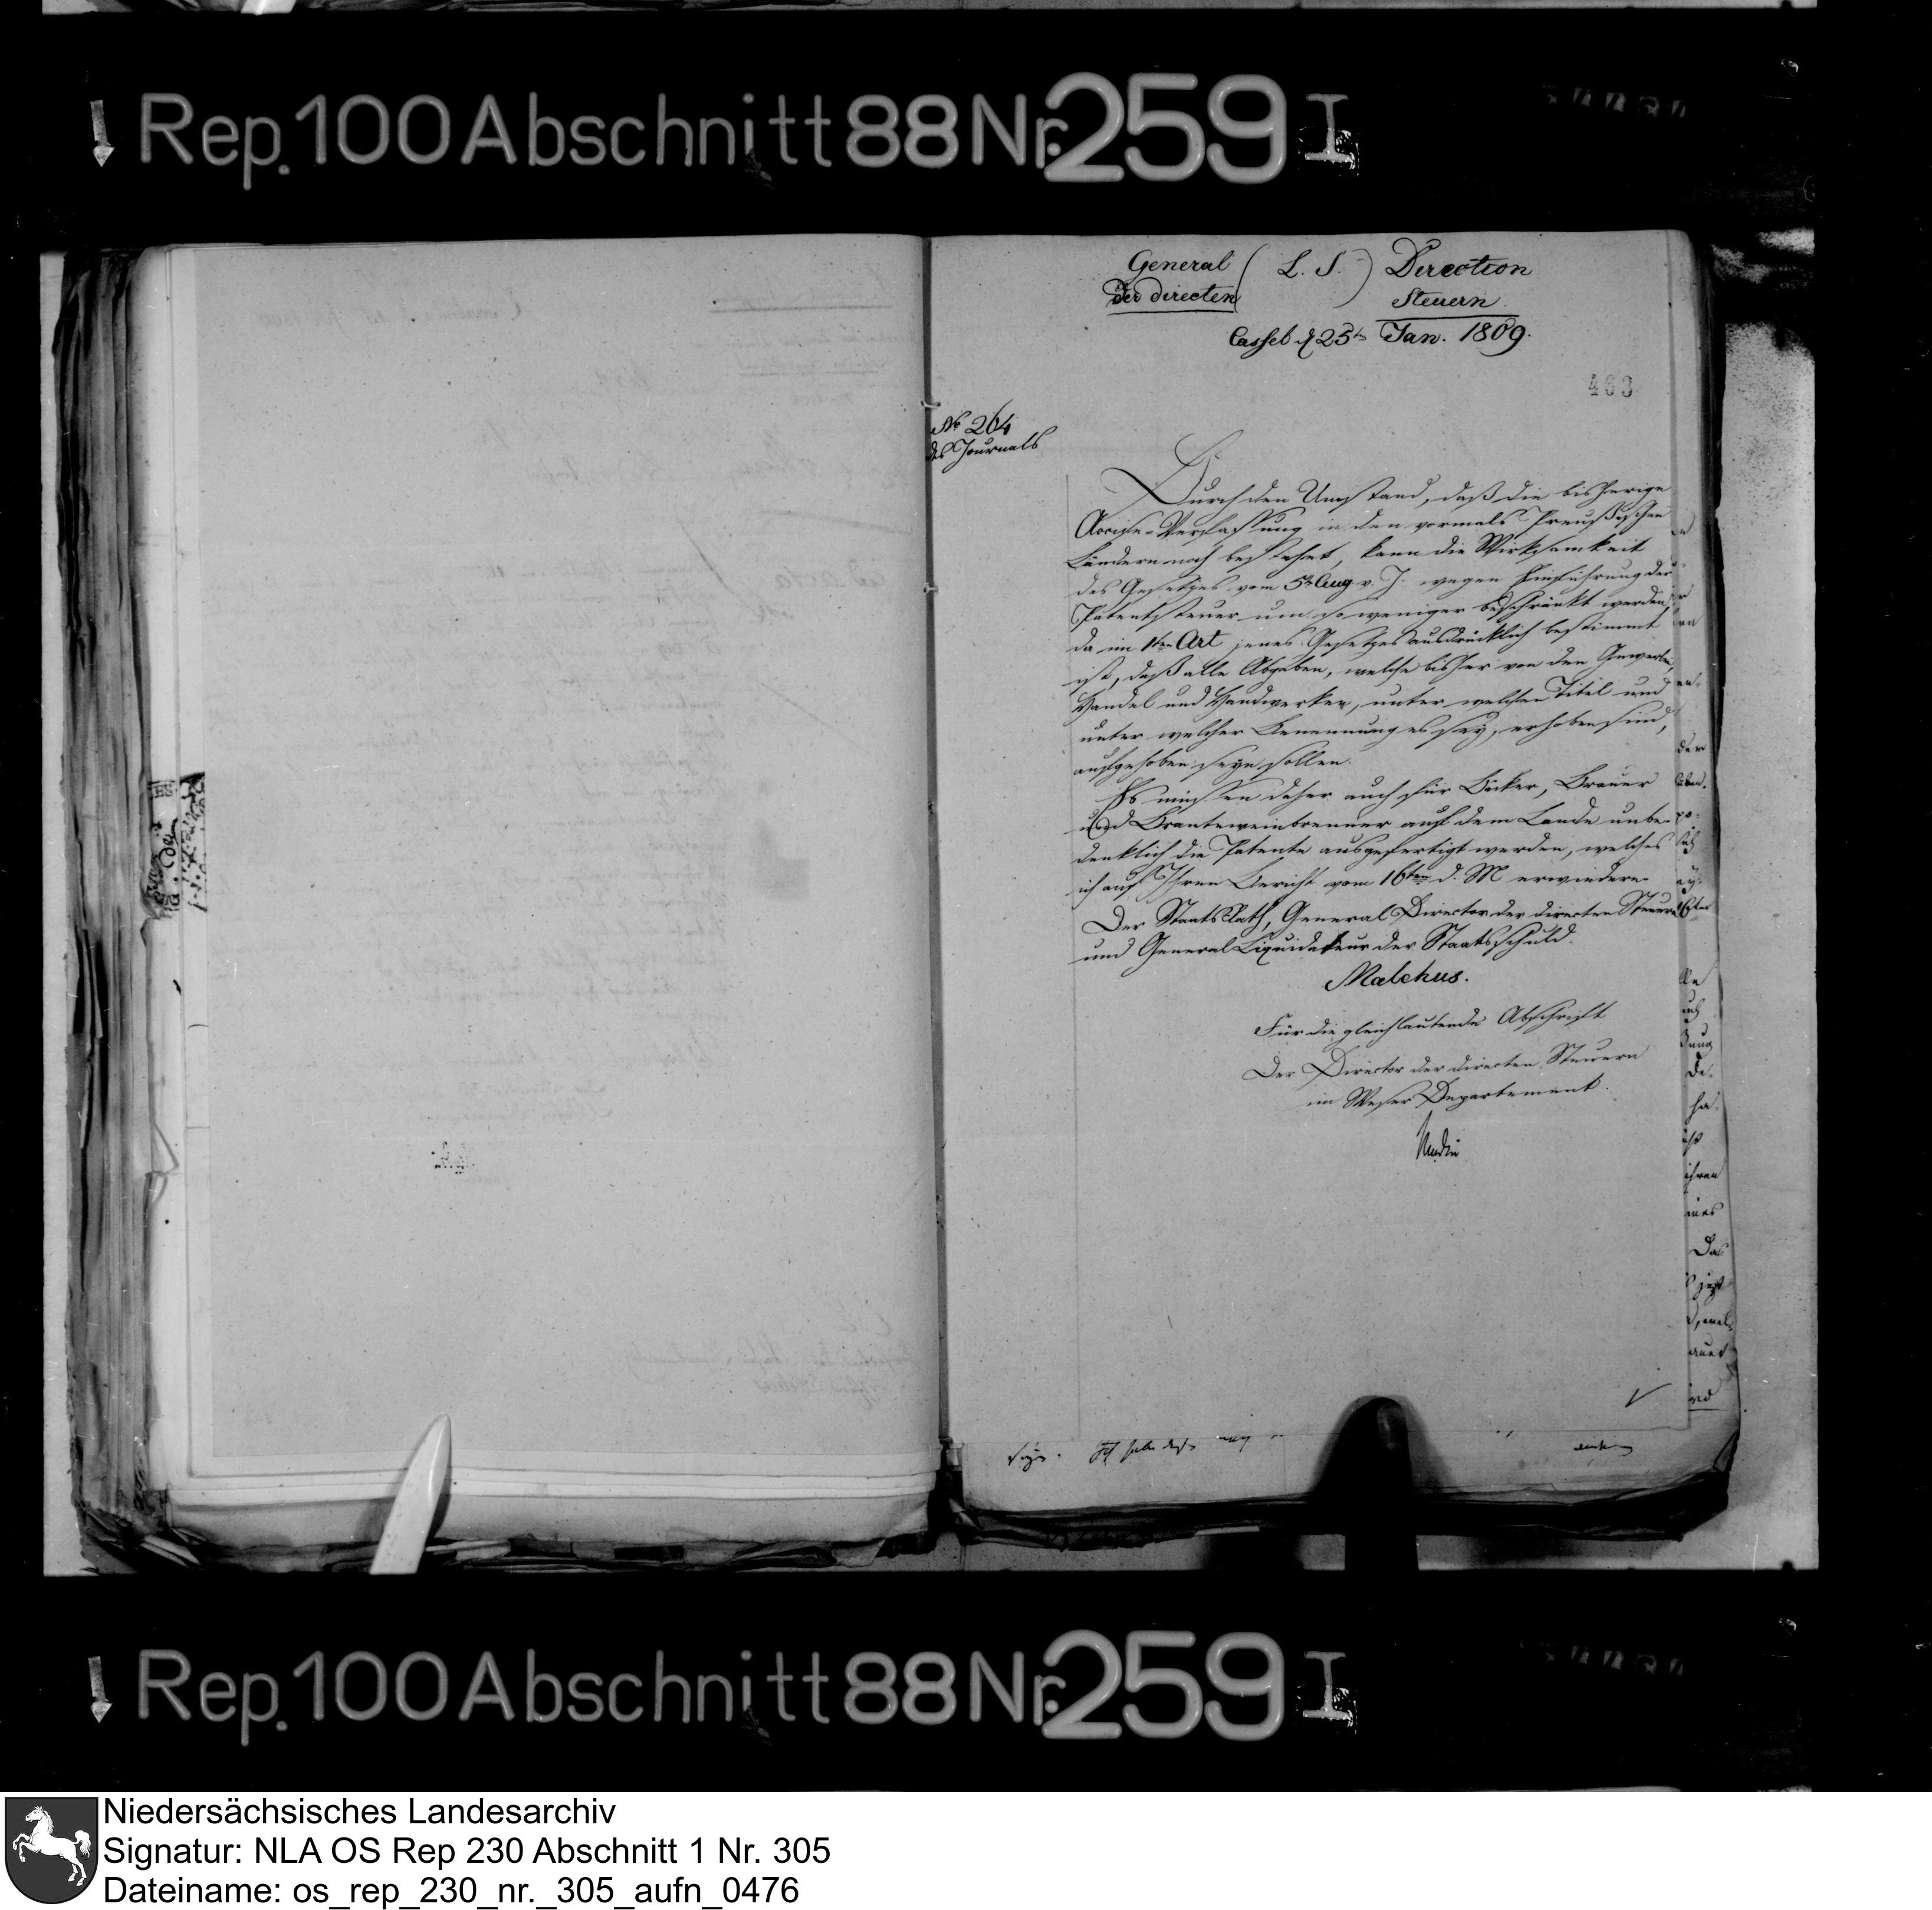 Rep. 100 Abschnitt 88 Nr. 259 I
General (L. S.) Direction
der directen Steuern.
Cassel d 25t Jan. 1809.
463
No 264
des Journals
Durch den Umstand, daß die bisherige
Accise-Verfassung in den vormals Preußischen
Ländern noch bestehet, kann die Wirksamkeit
des Gesetzes vom 5t Aug. v. J. wegen Einführung der
Patentsteuer um so weniger beschränkt werden,
da im 1ten Art jenes Gesetzes ausdrücklich bestimmt
ist, daß alle Abgaben, welche bisher von den Gewerben,
Handel und Handwerken, unter welchen Titel und
unter welcher Benennung es sey, erhoben sind,
aufgehoben seyn sollen.
Es müssen daher auch für Bäcker, Brauer
und Branteweinbrenner auf dem Lande unbe-
denklich die Patente ausgefertigt werden, welches
ich auf Ihren Bericht vom 16ten d. M erwiedere.
Der StaatsRath, General Director der directen Steuern
und General Liquidateur der Staatsschuld.
Malchus.
Für die gleichlautende Abschrift
Der Director der directen Steuern
im Weser Departement.
Rep. 100 Abschnitt 88 Nr. 259 I
Niedersächsisches Landesarchiv
Signatur: NLA OS Rep 230 Abschnitt 1 Nr. 305
Dateiname: os_rep_230_nr._305_aufn_0476